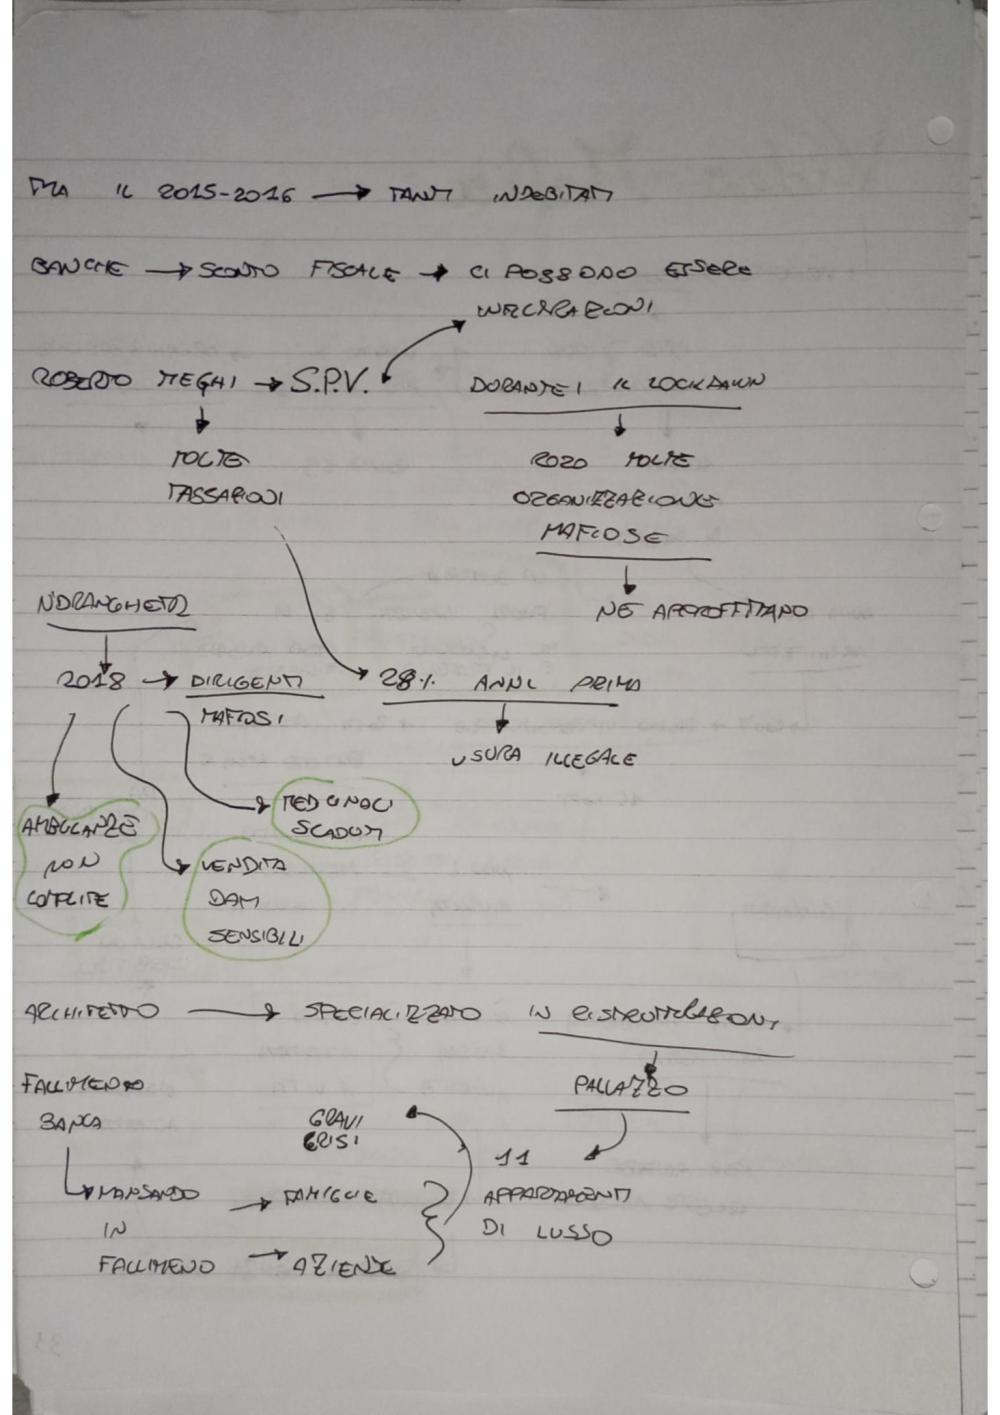 TRA IL 2015-2016 → TANTI INDEBITATI
BANCHE → SCONTO FISCALE → CI POSSONO ESSERE
INFILTRAZIONI
ROBERTO MEGHI → S.P.V.
DURANTE IL LOCKDOWN
MOLTE
TASSAZIONI
MOLTE
ORGANIZZAZIONE
MAFIOSE
NE APPROFITTANO
NDRANGHETA
2018 → DIRIGENTI
MAFIOSI
28% ANNI PRIMA
USURA ILLEGALE
MEDICINALI
SCADUTI
AMBULANZE
NON
COMPLETE
VENDITA
DATI
SENSIBILI
ARCHITETTO → SPECIALIZZATO IN RISTRUTTURAZIONI
PALLAZZO
11
APPARTAMENTI
DI LUSSO
FALLIMENTO
BANCA
MANDANDO
IN
FALLIMENO
→ FAMIGLIE
→ AZIENDE
GRAVI
CRISI